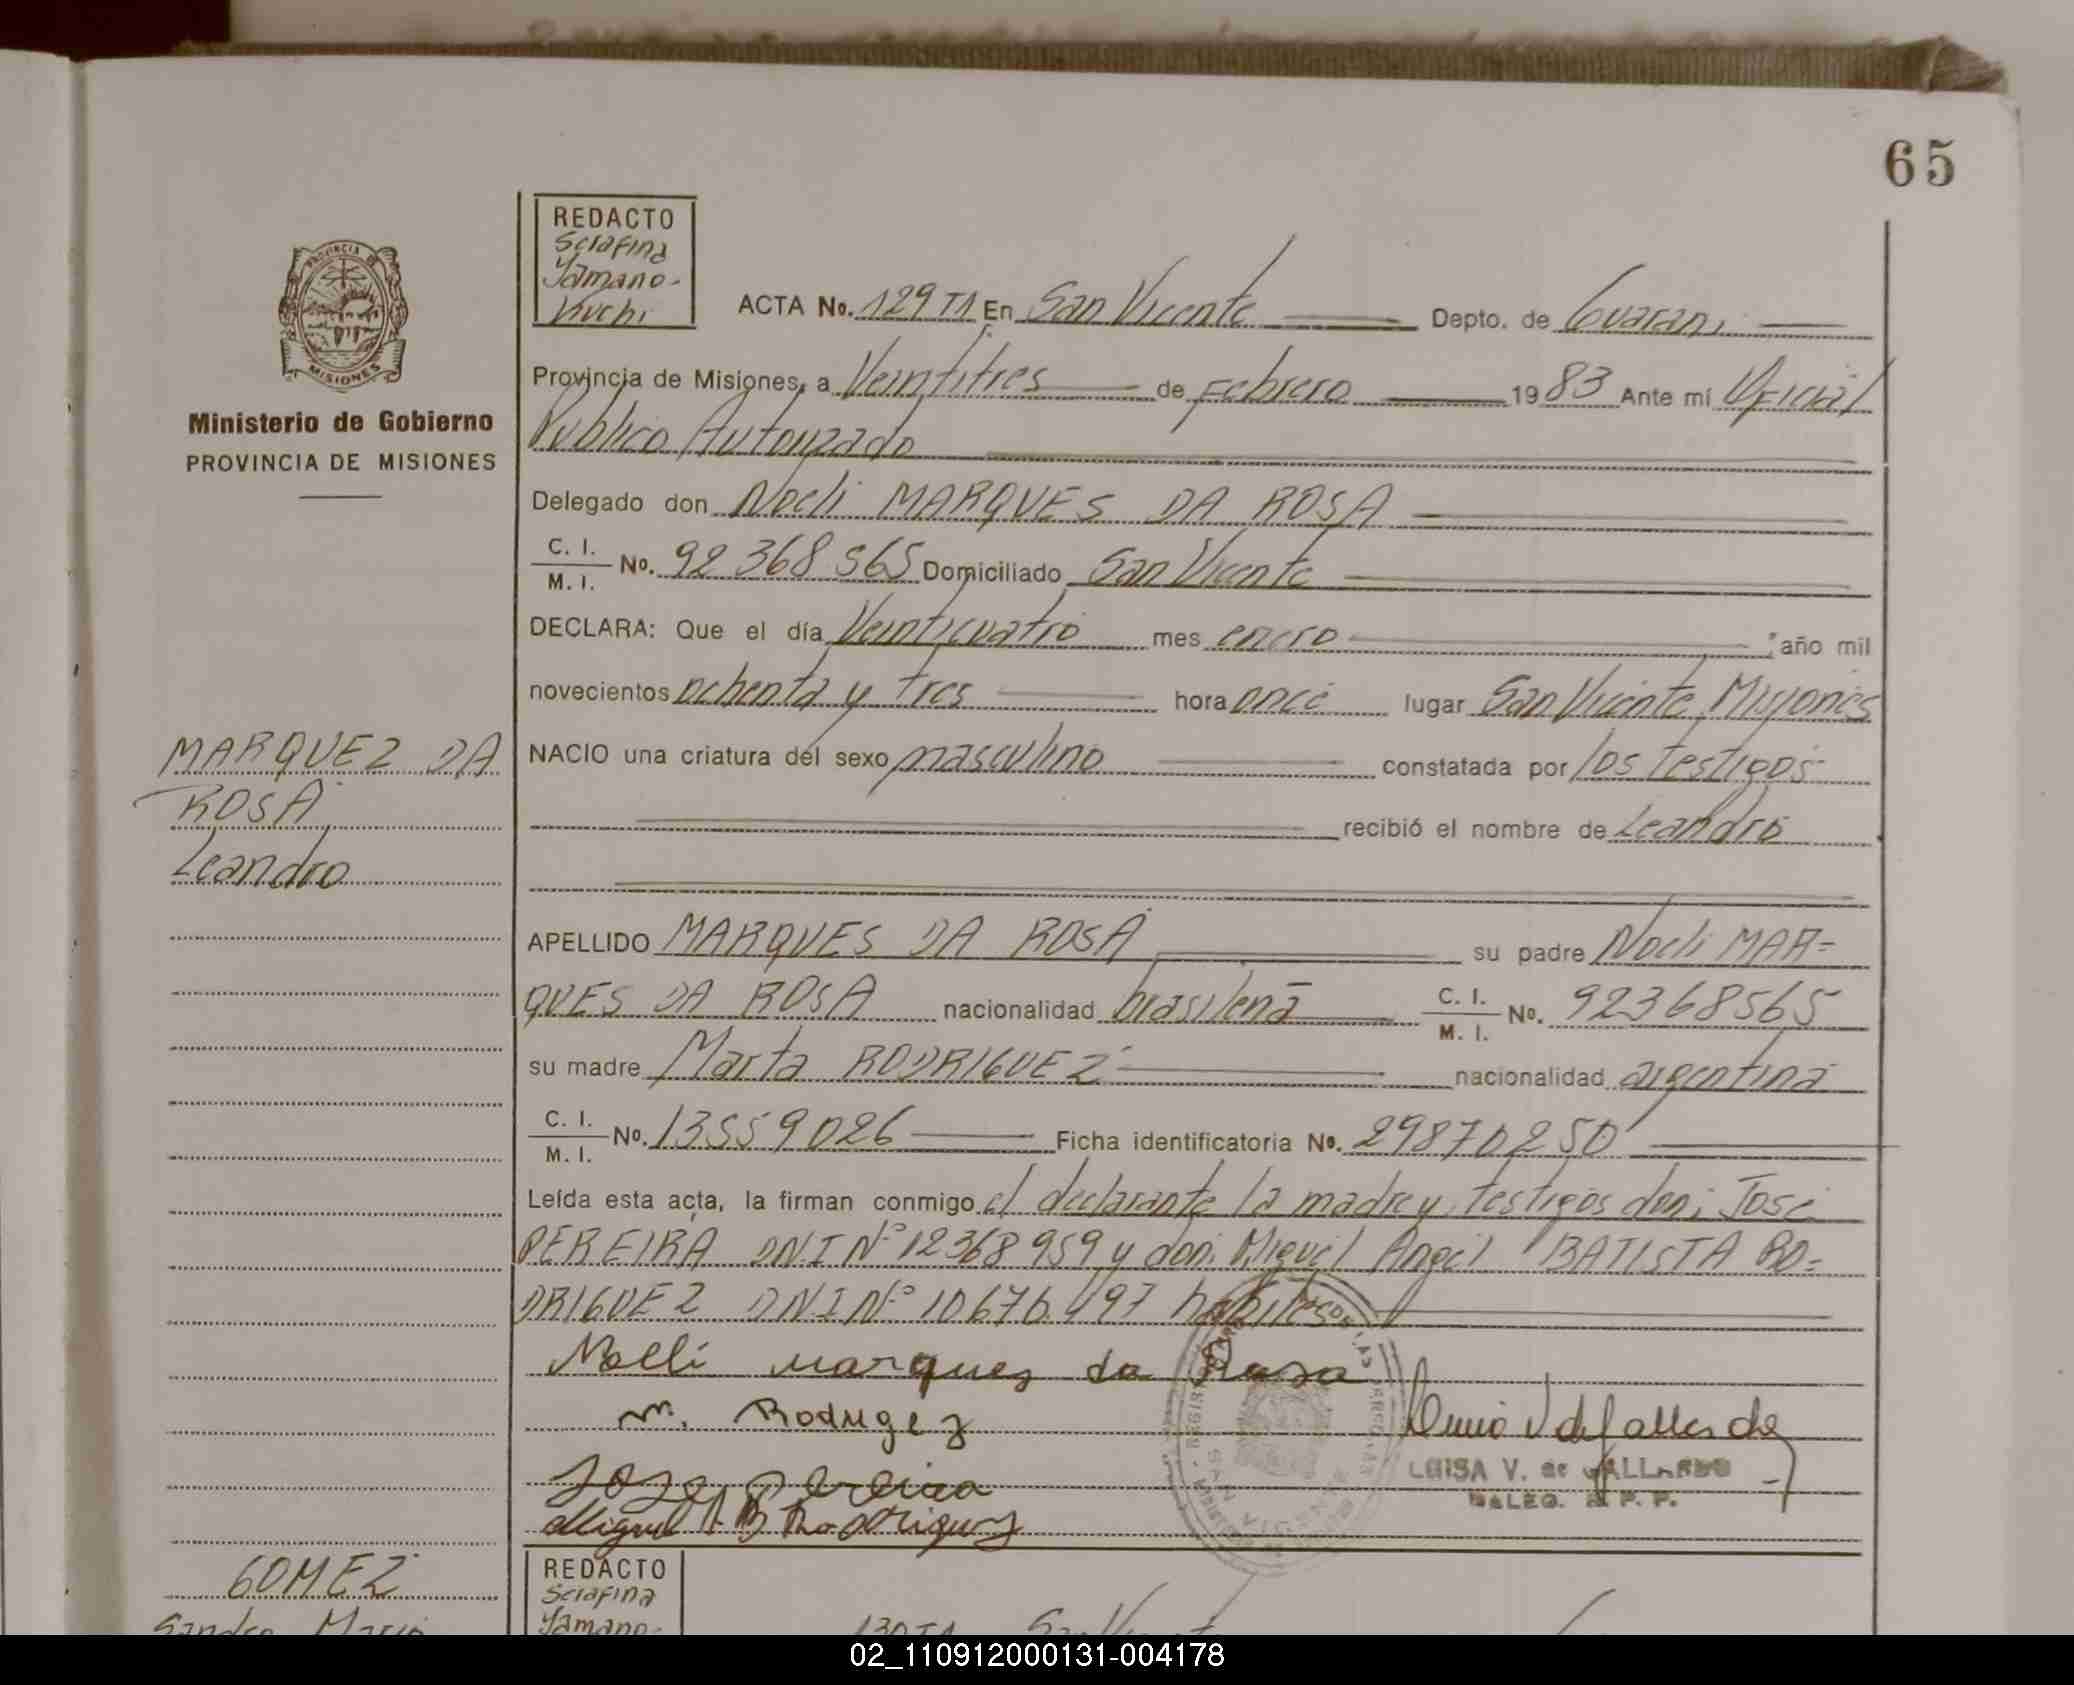 65
REDACTO
Serafina
Yamano-
kuchi
ACTA No. 129 T1 En San Vicente Depto. de Guaraní
PROVINCIA DE
MISIONES
Provincia de Misiones, a Veintitres de Febrero 1983 Ante mí Oficial
Ministerio de Gobierno
Público Autorizado
PROVINCIA DE MISIONES
Delegado don Nocli MARQUES DA ROSA
C. I.
M. I.
No. 92 368 565 Domiciliado San Vicente
DECLARA: Que el día Veinticuatro mes enero año mil
novecientos ochenta y tres hora once lugar San Vicente, Misiones
MARQUEZ DA
ROSA
Leandro
NACIO una criatura del sexo masculino constatada por los testigos
recibió el nombre de Leandro
APELLIDO MARQUES DA ROSA su padre Nocli MAR=
QUES DA ROSA nacionalidad brasileña C. I. M. I. No. 92368565
su madre Marta RODRIGUEZ nacionalidad argentina
C. I.
M. I.
No. 13559026 Ficha identificatoria No. 29870250
Leída esta acta, la firman conmigo el declarante la madre y testigos don; José
PEREIRA DNI Nº 12368959 y don; Miguel Angel BATISTA RO=
DRIGUEZ DNI Nº 10676497 habiles
Marques da Rosa
m. Rodrigez
Jose Pereira
Miguel A B Rodriguez
LUISA V. de GALLARDO
DELEG. R. P. P.
GOMEZ
Sandro Mario
REDACTO
Serafina
Yamano-
130 T1 San Vicente
02_110912000131-004178